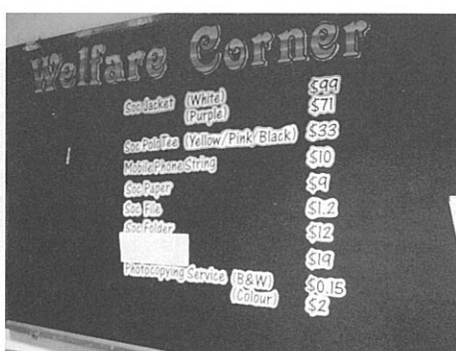 Welfare Corner
Soc Jacket (White) $99
(Purple) $71
Soc Polo Tee (Yellow/Pink/Black) $33
Mobile Phone String $10
Soc Paper $9
Soc File $1.2
Soc Folder $12
$19
Photocopying Service (B&W) $0.15
(Colour) $2